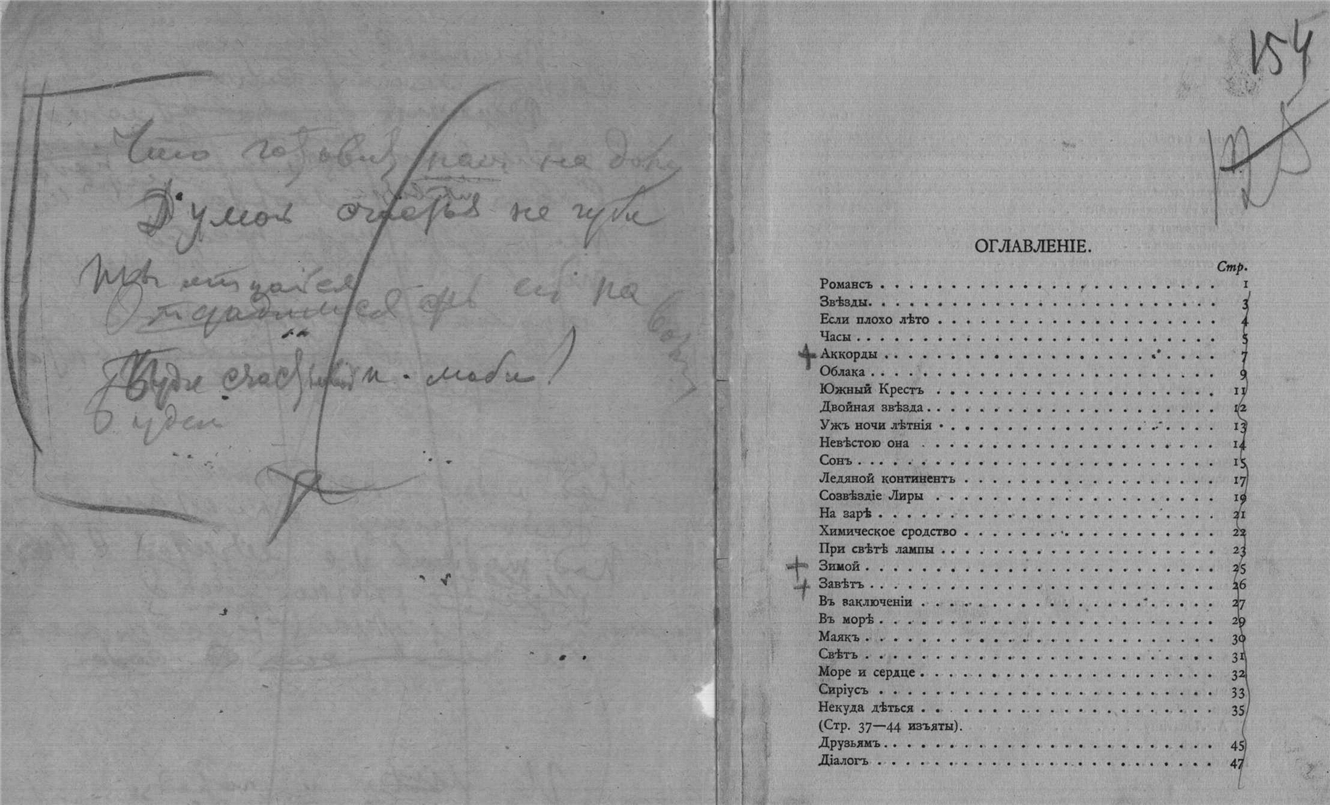 Что готовят на долю
Думой счастья не губи
Ты
её на
Будь счастлив и люби!
Будем
154
ОГЛАВЛЕНІЕ.
Стр.
Романсъ . . . 1
Звѣзды. . . . 3
Если плохо лѣто . . . 4
Часы . . . 5
Аккорды . . . 7
Облака . . . 9
Южный Крестъ . . . 11
Двойная звѣзда . . . 12
Ужъ ночи лѣтнія . . . 13
Невѣстою она . . . 14
Сонъ . . . 15
Ледяной континентъ . . . 17
Созвѣздіе Лиры . . . 19
На зарѣ . . . 21
Химическое сродство . . . 22
При свѣтѣ лампы . . . 23
Зимой . . . 25
Завѣтъ . . . 26
Въ заключеніи . . . 27
Въ морѣ . . . 29
Маякъ . . . 30
Свѣтъ . . . 31
Море и сердце . . . 32
Сиріусъ . . . 33
Некуда дѣться . . . 35
(Стр. 37—44 изъяты).
Друзьямъ . . . 45
Діалогъ . . . 47